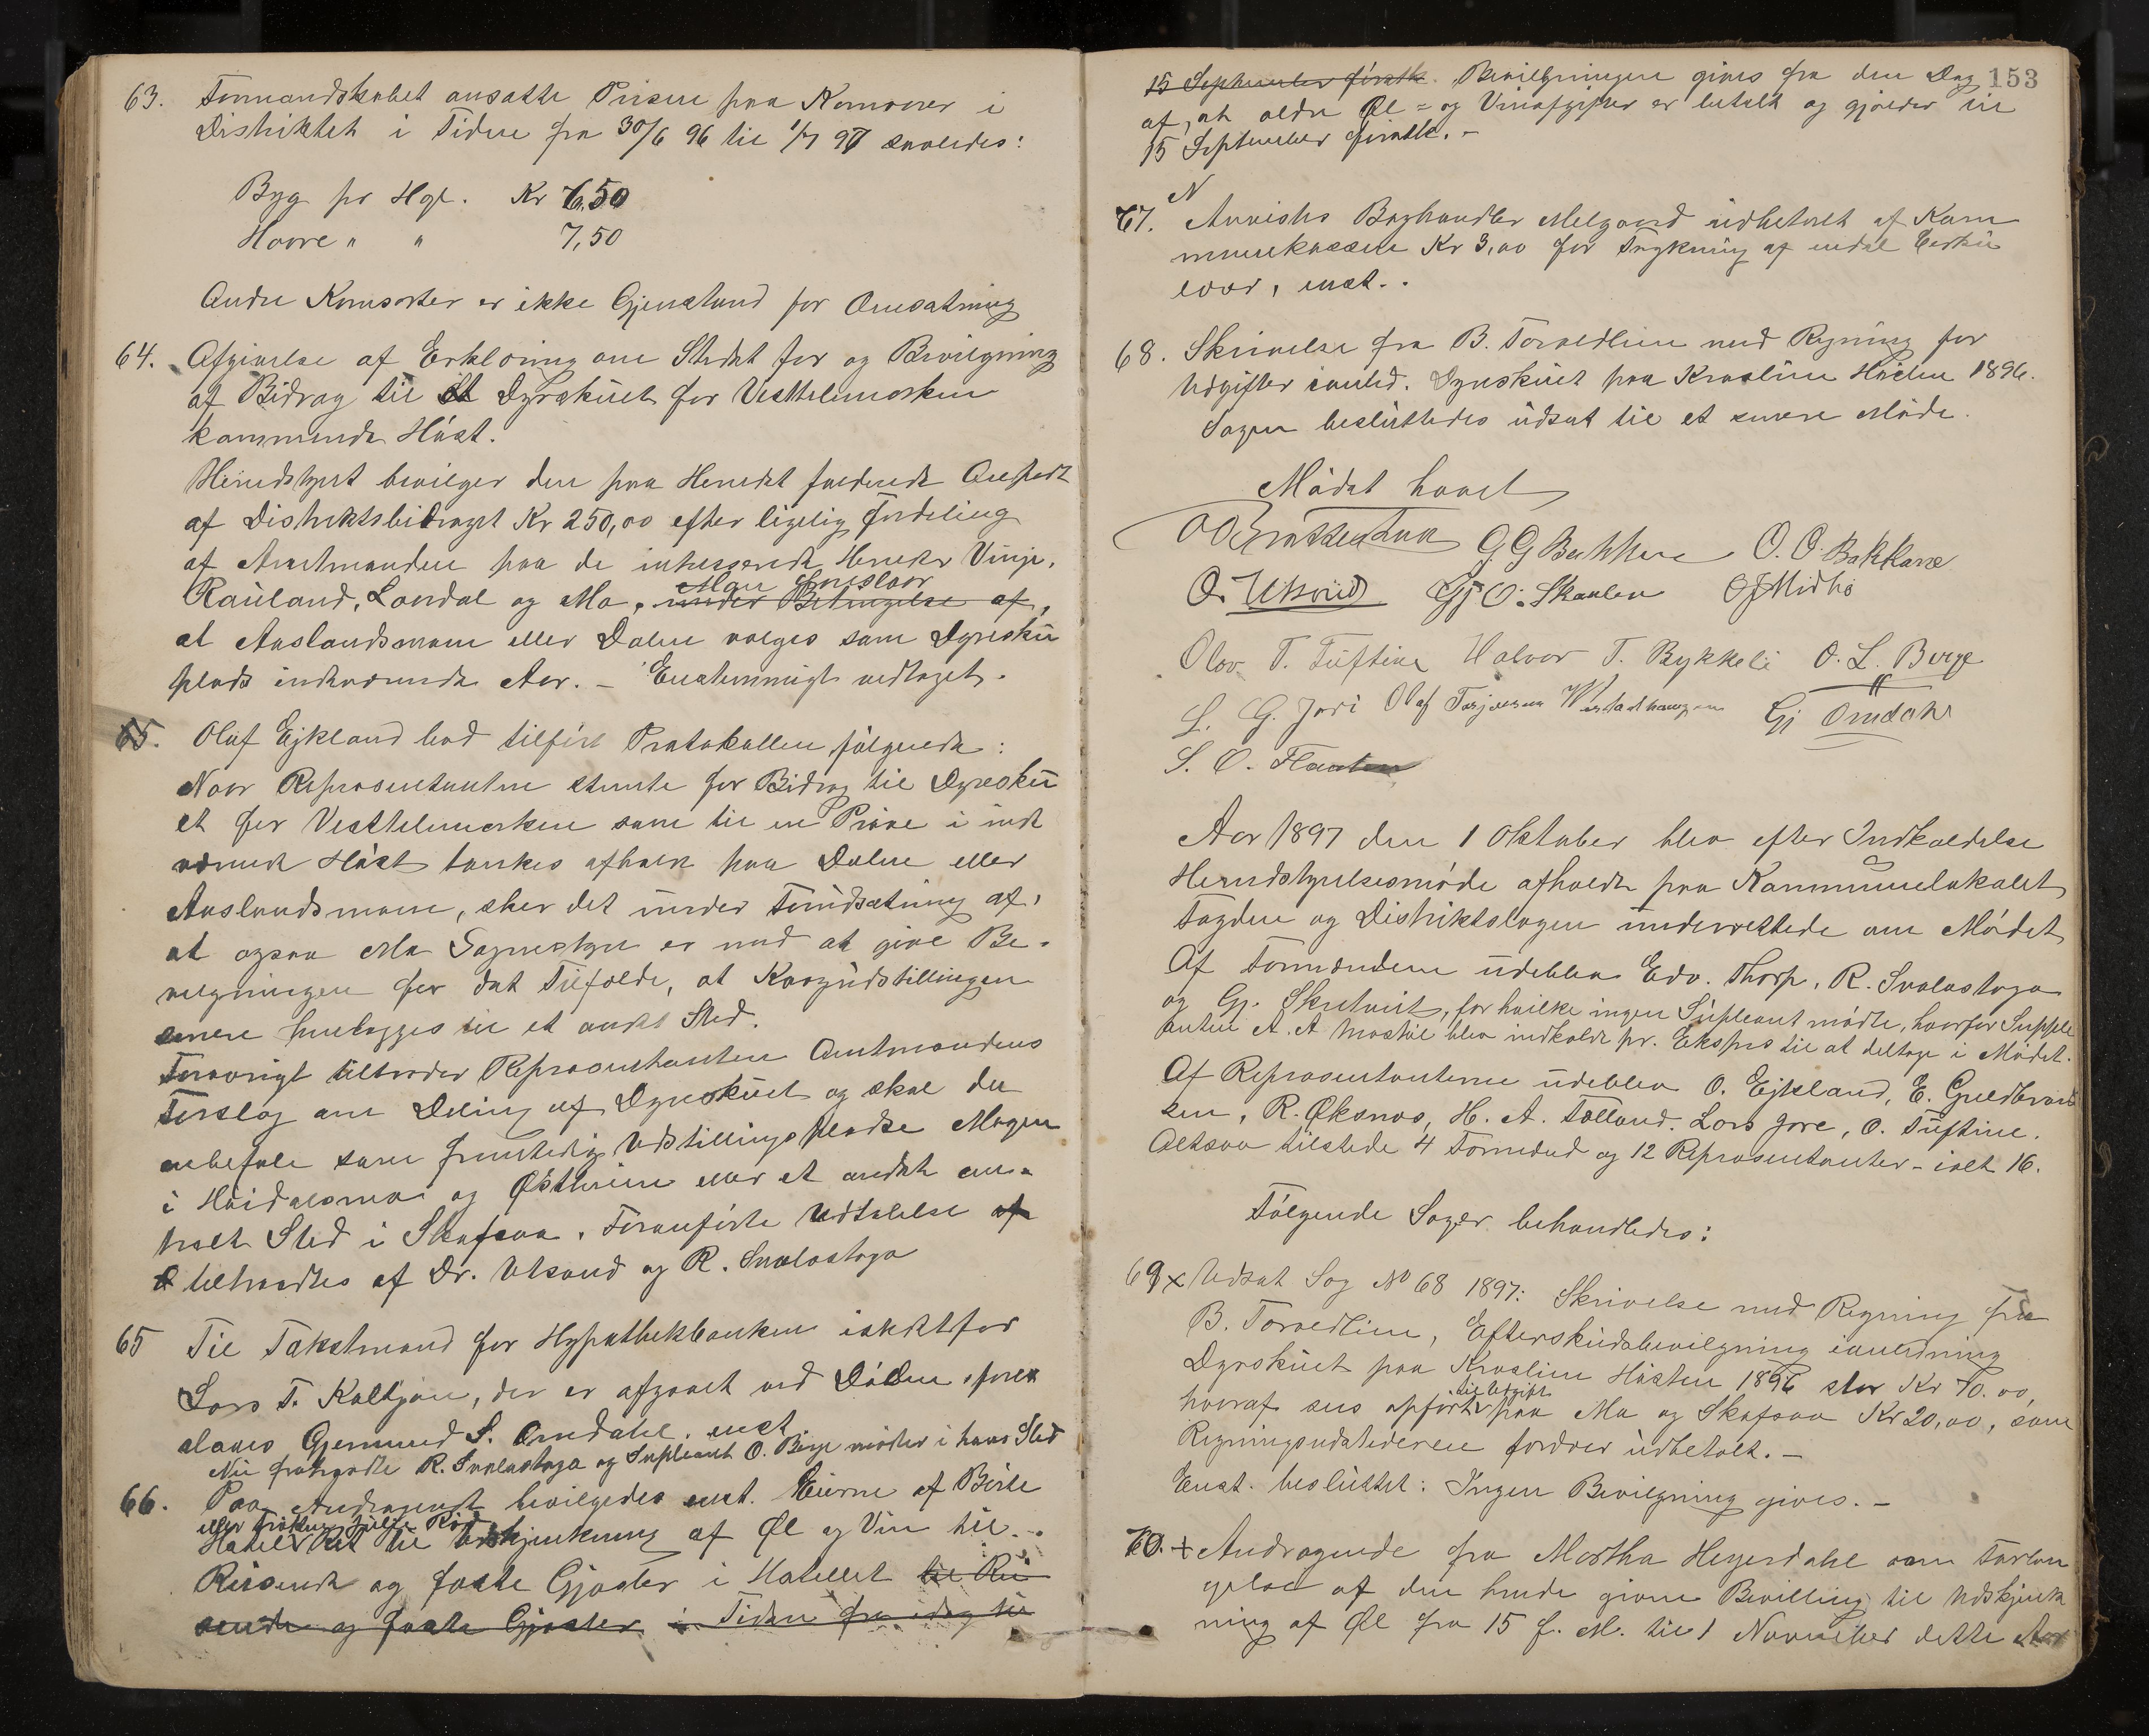 63. Formandskabet ansatte Prisene paa Kornvarer i
Distriktet i Tiden fra 30/6 96 til 1/7 97 saaledes:
Byg pr Hgl. Kr 6,50
Havre " " 7,50
Andre Kornsorter er ikke Gjenstand for Omsætning
64. Afgivelse af Erklæring om Stedet for og Bevilgning
af Bidrag til et Dyrskuet for Vesttelemarken
kommende Høst.
Herredstyret bevilger den paa Herredet faldende Anpart
af Distriktsbidraget Kr 250,00 efter ligelig Fordeling
af Amtmanden paa de interesserede Herreder Vinje,
Man foreslaar
Rauland, Laardal og Mo, under Betingelse af,
at Aaslandsmoen eller Dalen vælges som Dyrsku
plads indeværende Aar. – Enstemmigt vedtaget.
65. Oluf Ejkland bad tilført Protokollen følgende:
Naar Repræsentanten stemte for Bidrag til Dyrsku
et for Vesttelemarken som til en Prøve i inde
værende Høst tænkes afholdt paa Dalen eller
Aaslandsmoen, sker det under Forudsætning af,
at ogsaa Mo Sognestyre er med at give Be-
vilgningen for det Tilfælde, at Kvægudstillingen
senere henlægges til et andet Sted.
Forøvrigt tiltræder Repræsentanten Amtmandens
Forslag om Deling af Dyrskuet og skal da
anbefale som fremtidig Udstillingspladse Mogen
i Høidalsmo og Østheim eller et andet cen-
tralt Sted i Skafsaa. Foranførte Udtalelse af
tiltraadtes af Dr. Utsond og R. Svalastoga
65 Til Takstmand for Hypothekbanken istedetfor
Lars T. Kaltjøn, der er afgaaet ved Døden, fore
slaaes Gjermund S. Omdahl. enst
Nu fratraadte R. Svalastoga og Supleant O. Berge møder i hans Sted
66. Paa Andragende bevilgedes enst. Eierne af Børte
eller Frøken Julie Røe
Hotel Ret til Udskjenkning af Øl og Vin til
Reisende og faste Gjæster i Hotellet til Rei
sende og faste Gjæster i Tiden fra idag til
153
15 September førstk. Bevilgningen gives fra den Dag
af, at ældre Øl- og Vinafgifter er betalt og gjælder til
15 September førstk. –
N
67. Anvistes Boghandler Melgaard udbetalt af Kom
munekassen Kr 3,00 for Trykning af endel Cirku
lær, enst.
68. Skrivelse fra B. Torvedlien med Regning for
Udgifter ianled. Dyrskuet paa Kroslien Høsten 1896.
Sagen besluttedes udsat til et senere Møde.
Mødet hævet
G G Bakken O. O. Bakkane
Gj O. Skaalen O J Midbø
Olav T. Tuftine Halvor T. Bykkeli O. L. Berge
L. G. Jori Olaf Torjussen Gj Omdahl
S. O. Flaaten
Aar 1897 den 1 Oktober blev efter Indkaldelse
Herredstyrelsesmøde afholdt paa Kommunelokalet
Fogden og Distriktslægen underrettede om Mødet
Af Formændene udeblev Edv. Thorp, R. Svalastoga
og Gj. Skretveit, for hvilke ingen Supleant mødte, hvorfor Supple
anten A. A Mostøl blev indkaldt pr. Ekspres til at deltage i Mødet.
Af Repræsentanterne udeblev O. Ejkland, E. Guldbrand
sen, R. Øksnes, H. A. Tolland. Lars Jore, O. Tuftine.
Altsaa tilstede 4 Formænd og 12 Repræsentanter – ialt 16.
Følgende Sager behandledes:
69 x Udsat Sag No 68 1897: Skrivelse med Regning fra
B. Torvedlien, Efterskudsbevilgning ianledning
Dyrskuet paa Kroslien Høsten 1896 stor Kr 70.00,
til Udgift
hvoraf sees opført paa Mo og Skafsaa Kr 20,00, som
Regningsudstederen fordrer udbetalt. –
Enst. besluttet: Ingen Bevilgning gives. –
70. + Andragende fra Martha Heyerdahl om Forlæn
gelse af den hende givne Bevilling til Udskjenk
ning af Øl fra 15 f. M. til 1 November dette Aar